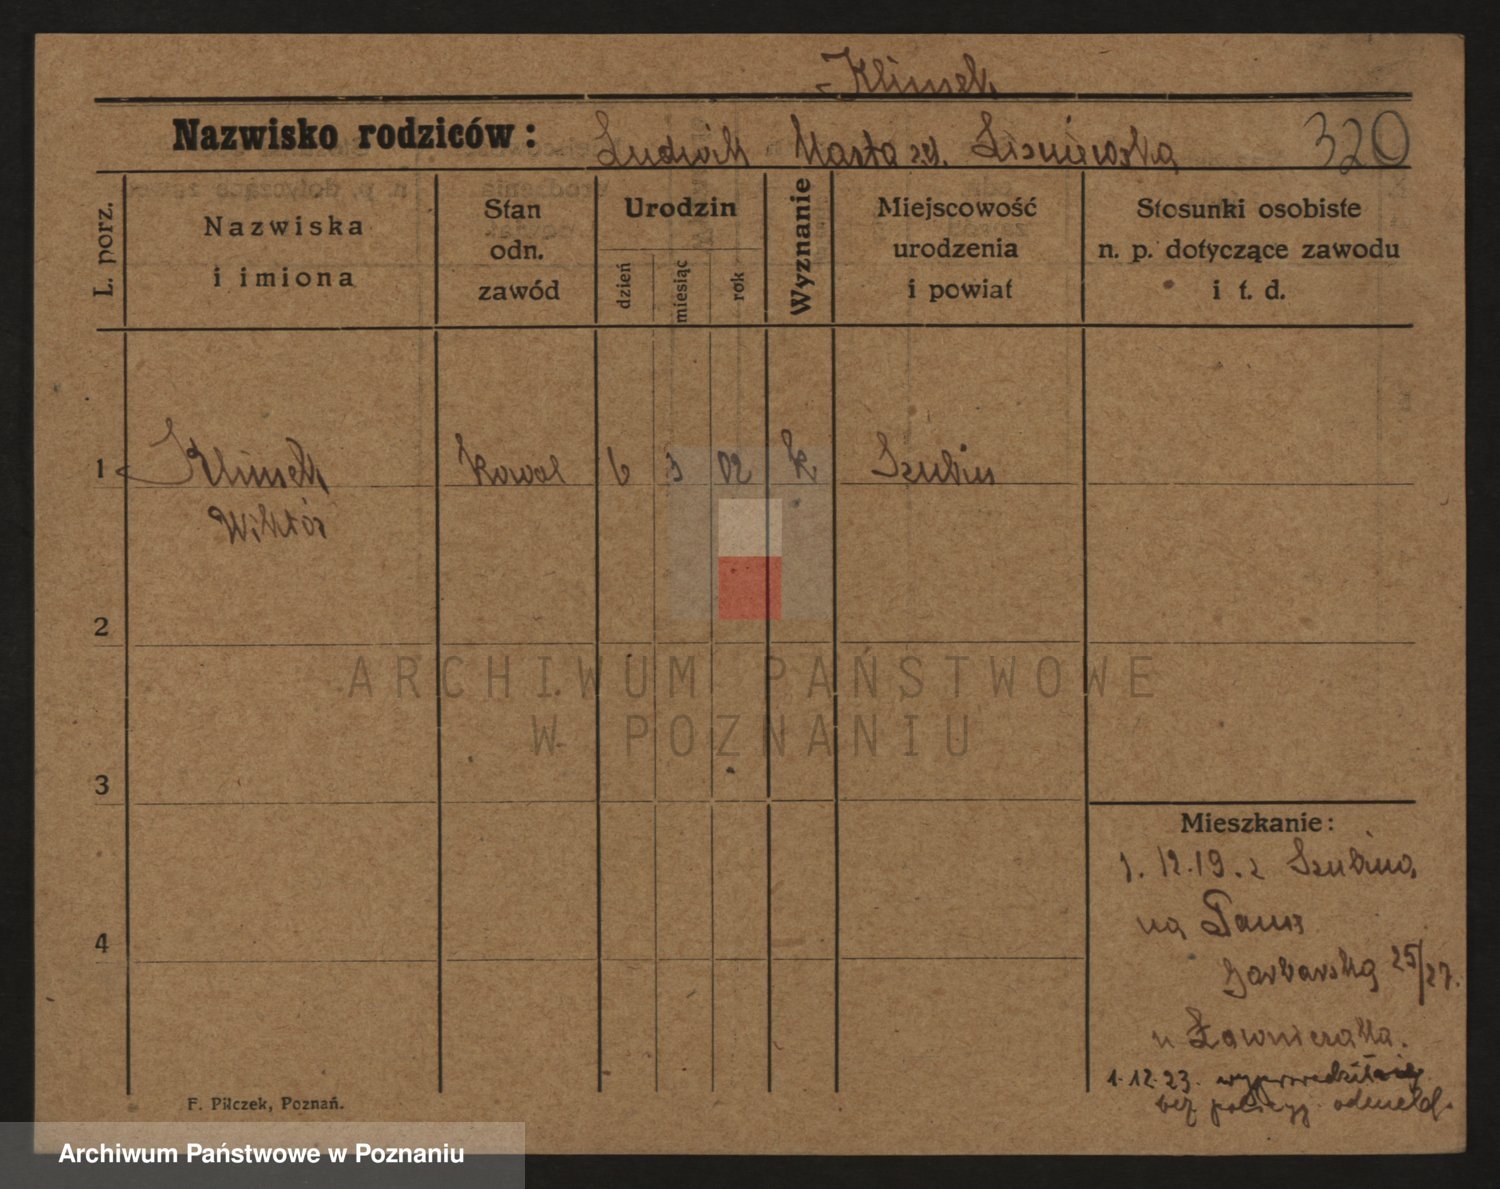 Klimek
Nazwisko rodziców: Ludwik Marta zd. Liśniewska 320
L. porz.
Nazwiska
i imiona
Stan
odn.
zawód
Urodzin
dzień
miesiąc
rok
Wyznanie
Miejscowość
urodzenia
i powiat
Stosunki osobiste
n. p. dotyczące zawodu
i t. d.
1 Klimek Kowal 6 3 02 k Szubin
Wiktór
2
3
4
Mieszkanie:
1.12.19. z Szubina
na
Garbarska 25/27.
u
1.12.23. wyprowadził się
bez policyj. odmeld.
F. Pilczek, Poznań.
ARCHIWUM PAŃSTWOWE
W POZNANIU
Archiwum Państwowe w Poznaniu